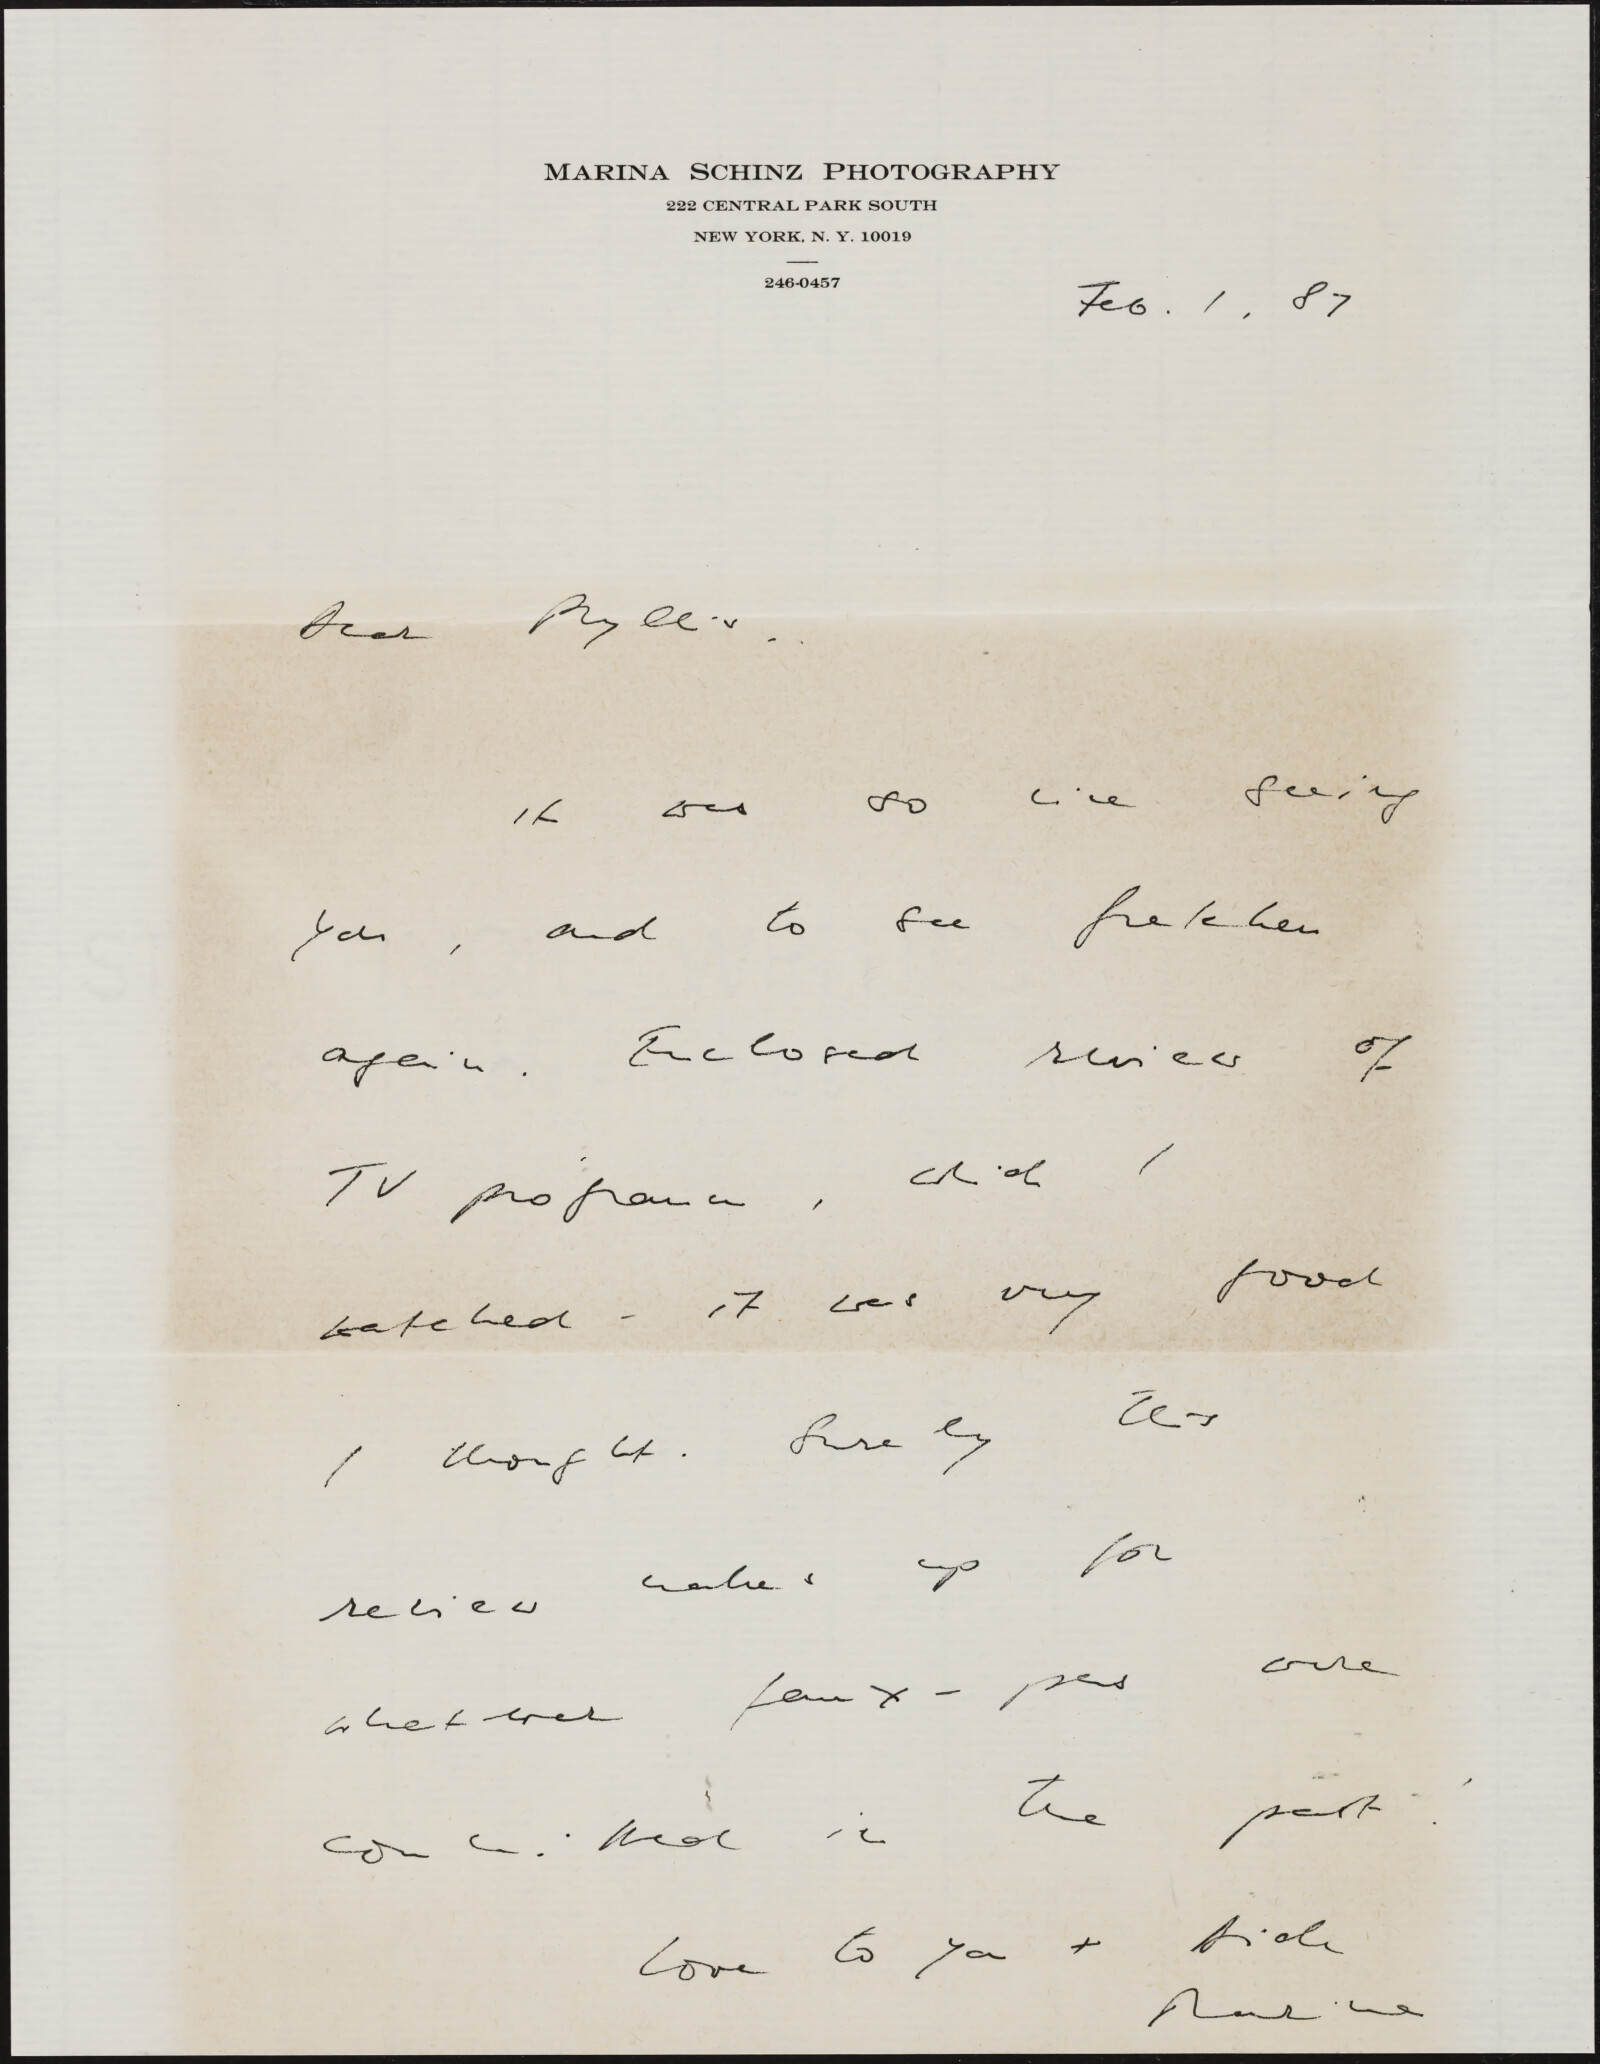 MARINA SCHINZ PHOTOGRAPHY
222 CENTRAL PARK SOUTH
NEW YORK, N. Y. 10019
246-0457
Feb. 1, 87
Dear Phyllis.
it was so nice seeing
you, and to see Gretchen
again. Enclosed review of
TV program, which I
watched - it was very good
I thought. Surely this
review makes up for
whatever faux-pas were
committed in the past!
Love to you + Dick
Marina